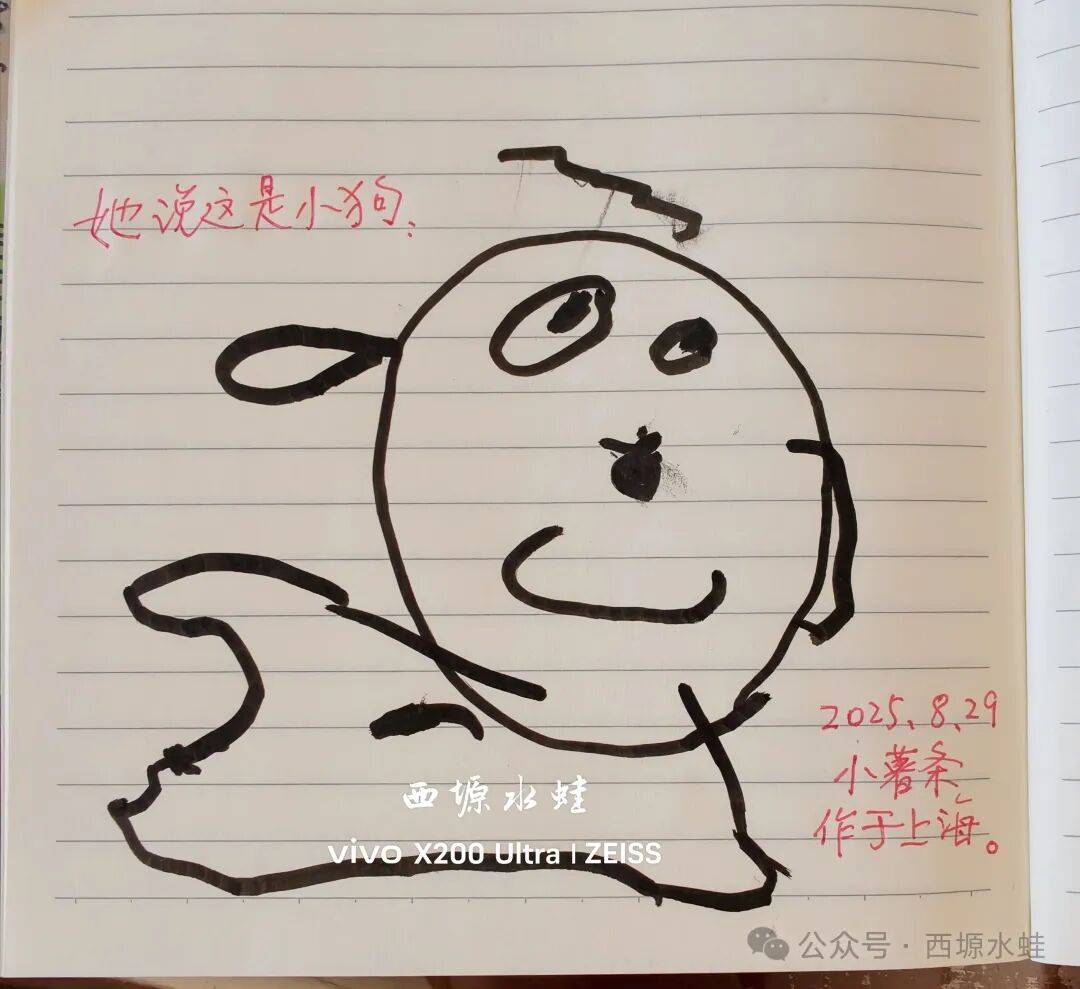 她说这是小狗:
2025、8、29
小薯条
作于上海。
西塬水蛙
vivo X200 Ultra | ZEISS
公众号 · 西塬水蛙